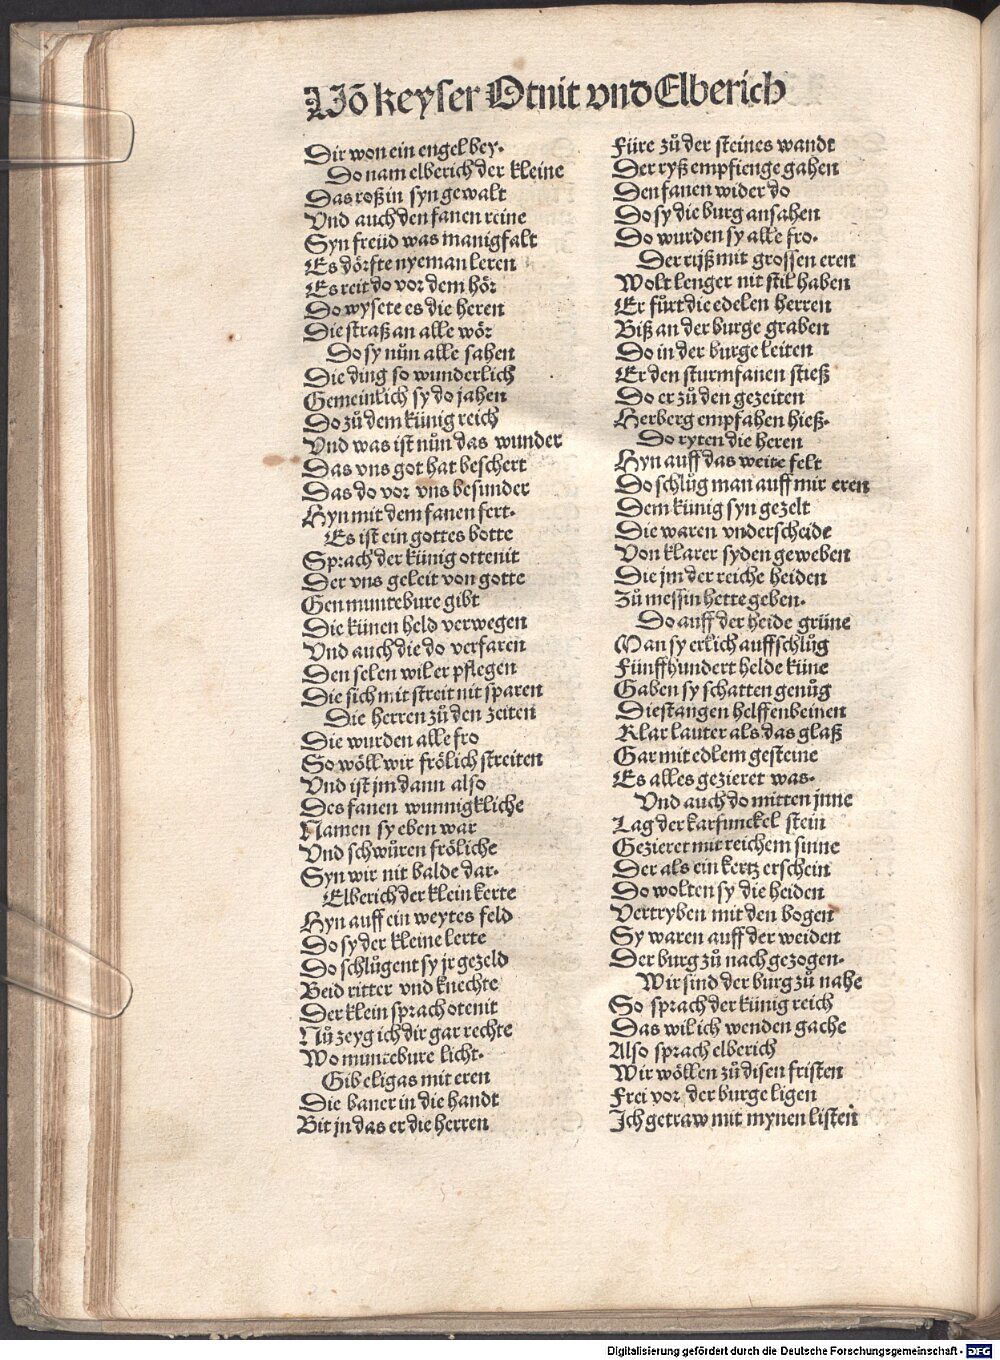 Võ keyser Otnit vnd Elberich
Dir won ein engel bey.
Do nam elberich der kleine
Das roß in syn gewalt
Vnd auch den fanen reine
Syn freüd was manigfalt
Es dörfte nyeman leren
Es reit do vor dem hör
Do wysete es die heren
Die straß an alle wör
Do sy nůn alle sahen
Die ding so wunderlich
Gemeinlich sy do jahen
Do zů dem künig reich
Vnd was ist nůn das wunder
Das vns got hat beschert
Das do vor vns besunder
Hyn mit dem fanen fert.
Es ist ein gottes botte
Sprach der künig ottenit
Der vns geleit von gotte
Gen muntebure gibt
Die künen held verwegen
Vnd auch die do verfaren
Den selen wil er pflegen
Die sich mit streit nit sparen
Die herren zů den zeiten
Die wurden alle fro
So wöll wir frölich streiten
Vnd ist jm dann also
Des fanen wunnigkliche
Namen sy eben war
Vnd schwůren fröliche
Syn wir nit balde dar.
Elberich der klein kerte
Hyn auff ein weytes feld
Do sy der kleine lerte
Do schlůgent sy jr gezeld
Beid ritter vnd knechte
Der klein sprach otenit
Nů zeyg ich dir gar rechte
Wo muntebure licht.
Gib eligas mit eren
Die baner in die handt
Bit jn das er die herren
Füre zů der steines wandt
Der ryß empfienge gahen
Den fanen wider do
Do sy die burg ansahen
Do wurden sy alle fro.
Der rijß mit grossen eren
Wolt lenger nit stil haben
Er fůrt die edelen herren
Biß an der burge graben
Do in der burge leiten
Er den sturmfanen stieß
Do er zů den gezeiten
Herberg empfahen hieß.
Do ryten die heren
Hyn auff das weite felt
Do schlůg man auff mir eren
Dem künig syn gezelt
Die waren vnderscheide
Von klarer syden geweben
Die jm der reiche heiden
Zů messin hette geben.
Do auff der heide grüne
Man sy erlich auffschlůg
Fünffhundert helde küne
Gaben sy schatten genůg
Die stangen helffenbeinen
Klar lauter als das glaß
Gar mit edlem gesteine
Es alles gezieret was.
Vnd auch do mitten jnne
Lag der karfunckel stein
Gezieret mit reichem sinne
Der als ein kertz erschein
Do wolten sy die heiden
Vertryben mit den bogen
Sy waren auff der weiden
Der burg zů nach gezogen.
Wir sind der burg zů nahe
So sprach der künig reich
Das wil ich wenden gache
Also sprach elberich
Wir wöllen zů disen fristen
Frei vor der burge ligen
Ich getraw mit mynen listen
Digitalisierung gefördert durch die Deutsche Forschungsgemeinschaft - DFG